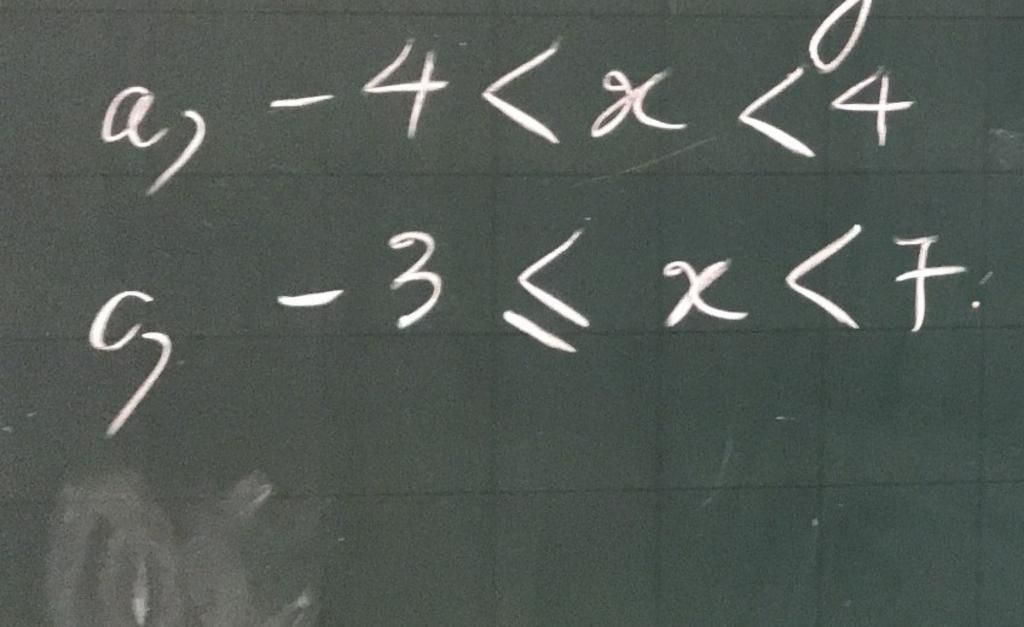 a, -4 < x < 4
c, -3 ≤ x < 7.